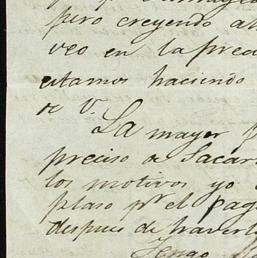 pero creyendo
veo en la prec
estamos haciendo
de V.
La mayor
preciso de Sacar
los motivos yo
plaso pr el pag
despues de haverl
Tengo